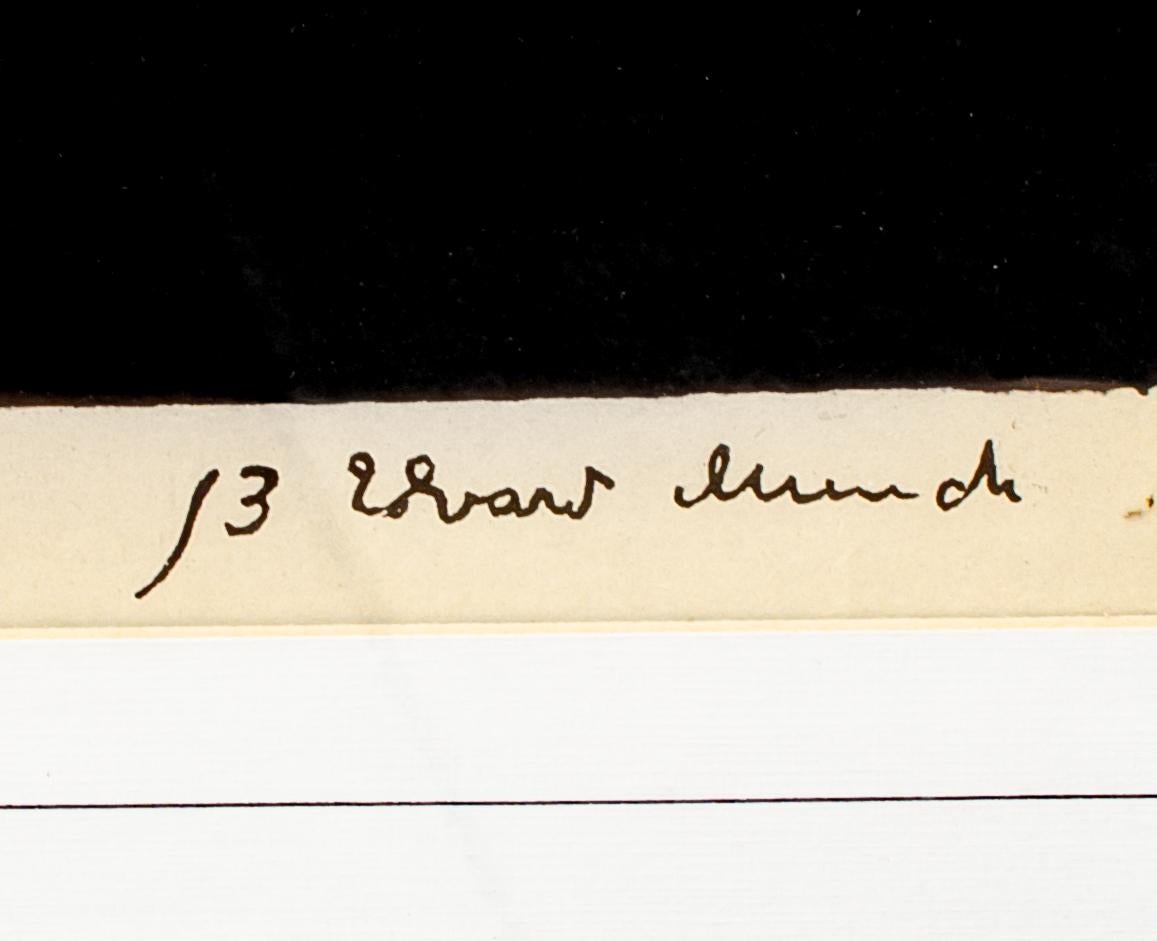 13 Edvard Munch